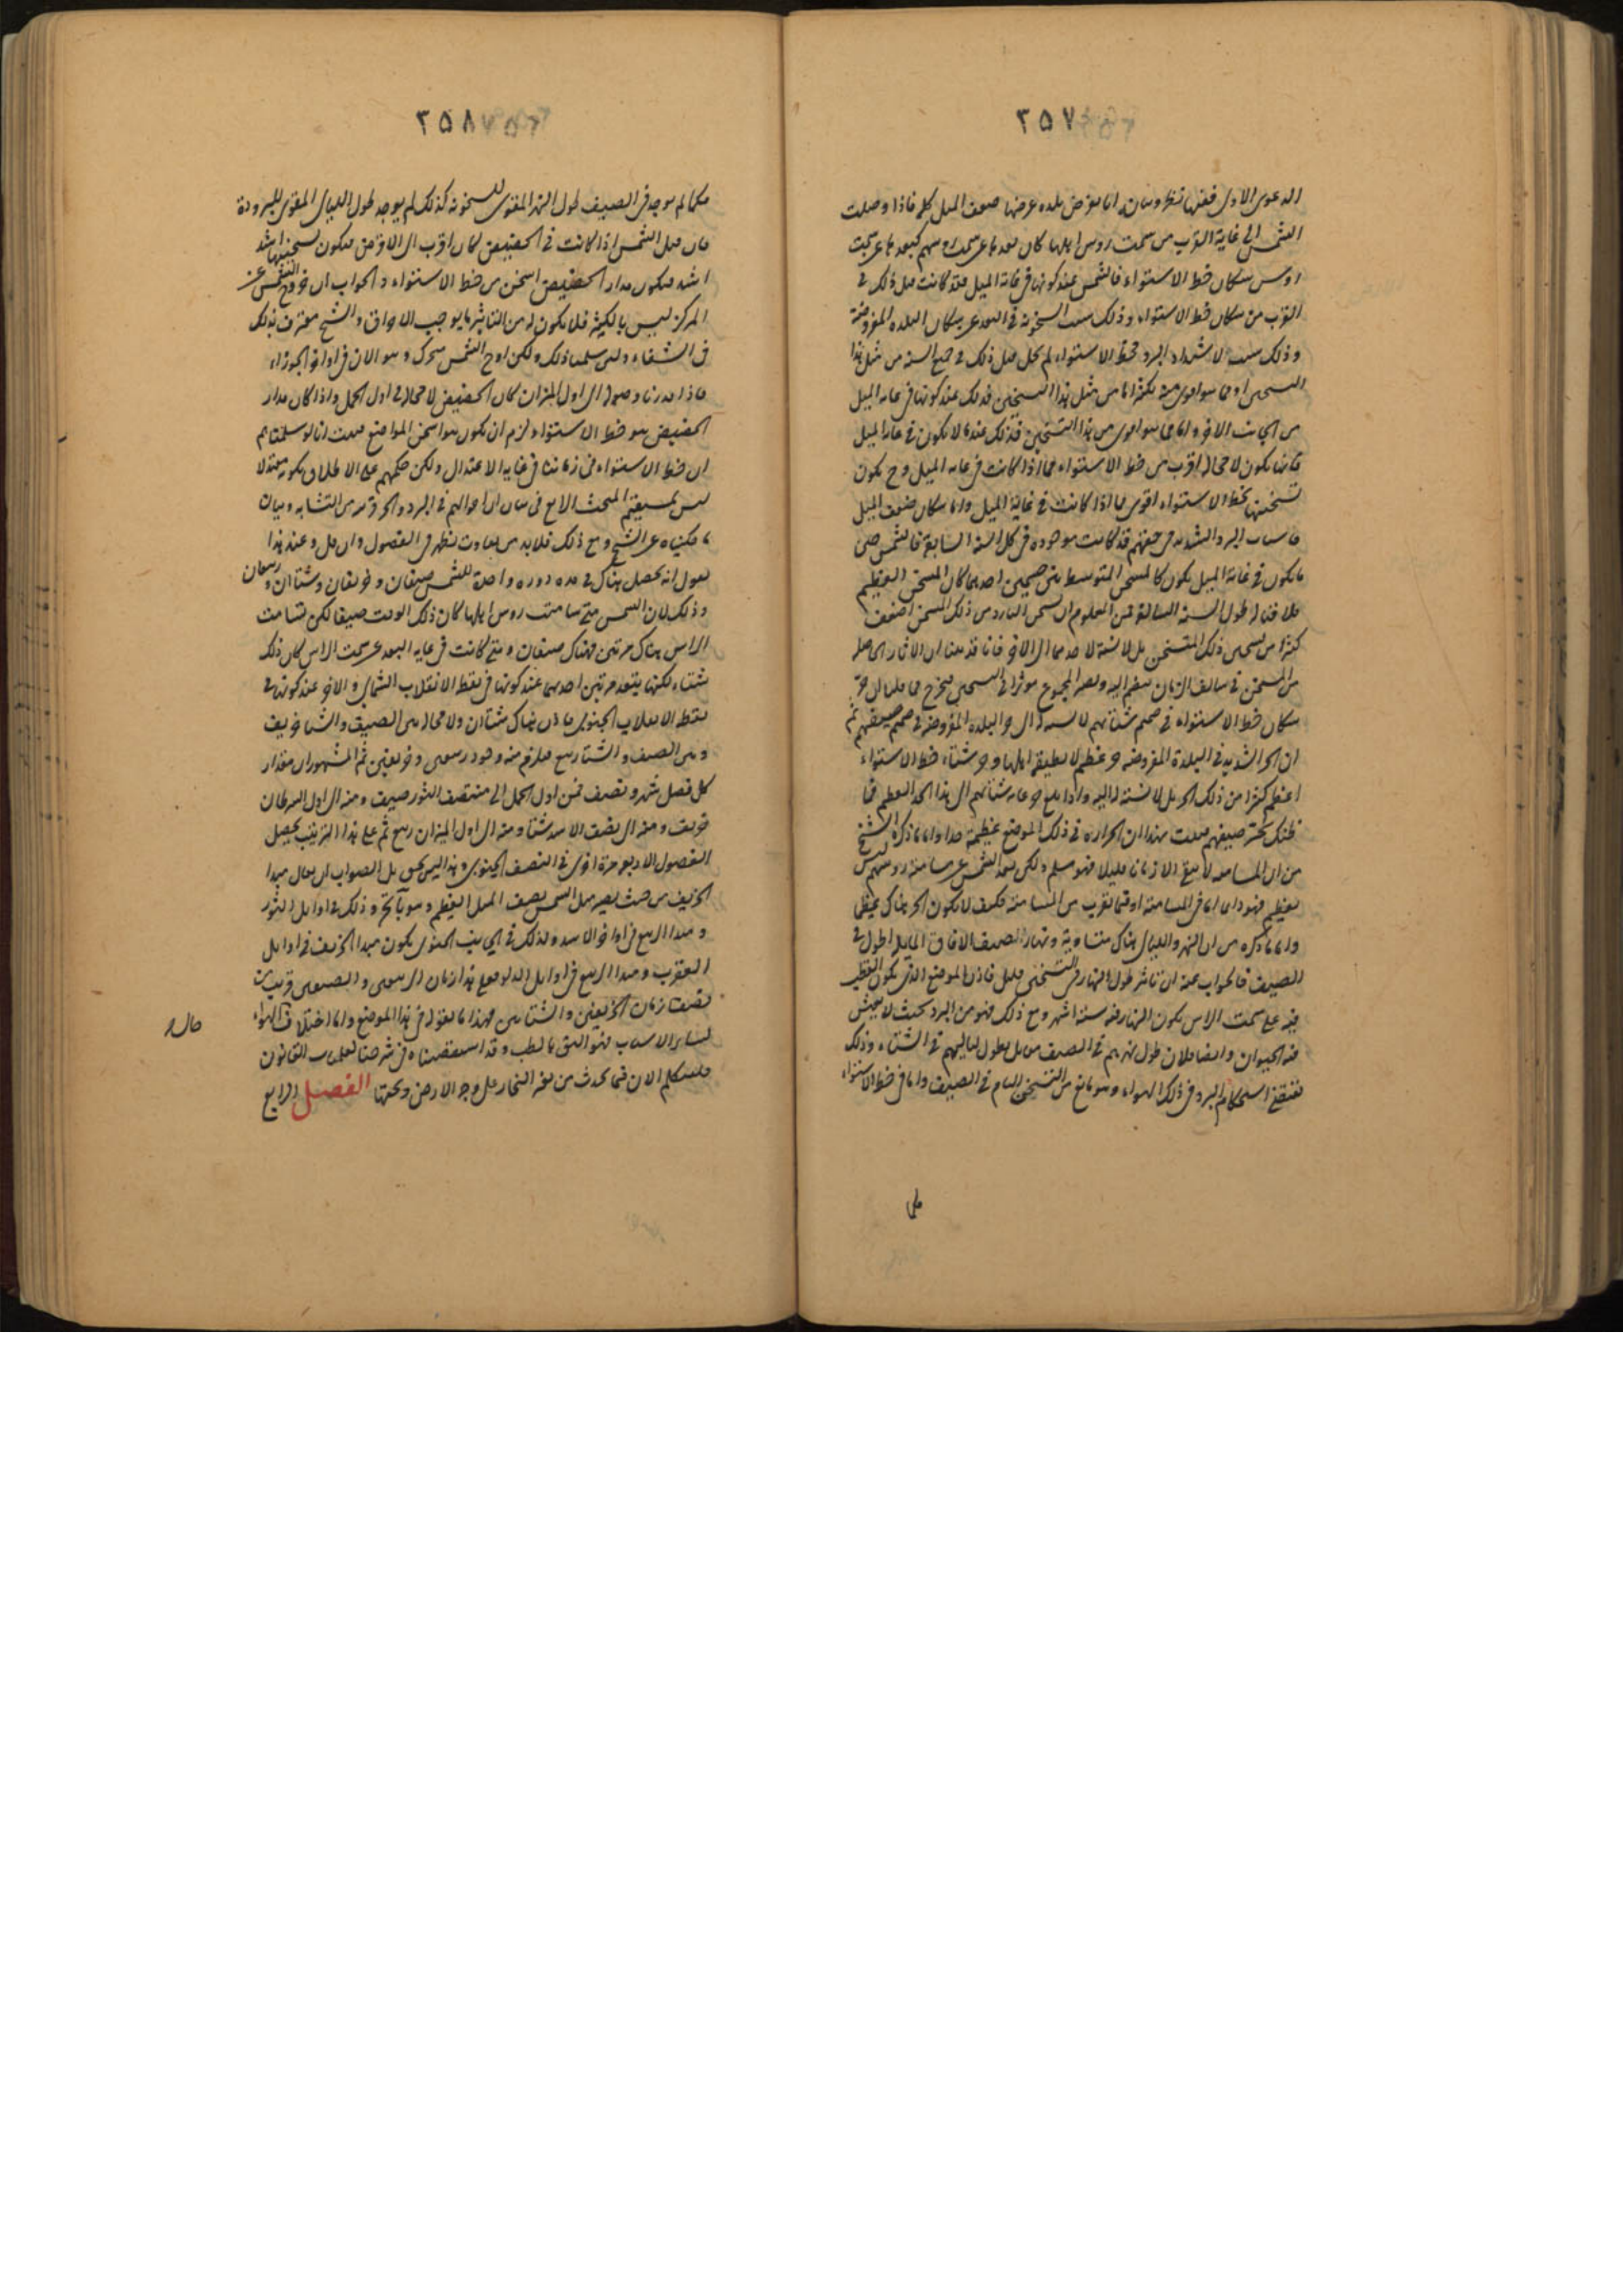 ٣٥٧
الدعوى الاولى ففيها نظر وبيانه انا نفرض بلده عرضها ضعف الميل كله فاذا وصلت
الشمس الى غاية القرب من سمت روس اهلها كان بعدها عن سمت روسهم كبعدها عن سمت
روس سكان خط الاستواء فالشمس عند كونها فى غاية الميل قد كانت قبل ذلك فى
القرب من سكان خط الاستواء وذلك سبب السخونة فى البعد عن سكان البلده المفروضة
وذلك سبب لاشتداد البرد فخط الاستواء لم يخل قبل ذلك فى جميع السنه من مثل هذا
التسخين او مما هو اقوى منه بكثير اما من مثل هذا التسخين فذلك عند كونها فى غايه الميل
من الجانب الاخر واما مما هو اقوى من هذا التسخين فذلك عند ما لا تكون فى غاية الميل
فانها تكون لا محاله اقرب من خط الاستواء مما اذا كانت فى غايه الميل وح يكون
تسخينها بخط الاستواء اقوى مما اذا كانت فى غاية الميل واما سكان ضعف الميل
فاسباب البرد الشديد فى حقهم قد كانت موجوده فى كل السنه السابقة فالشمس حين
ما تكون فى غاية الميل تكون كالمسخن المتوسط بين جسمين احدهما كان المسخن العظيم
ملاقيا له طول السنه السالفة فمن المعلوم ان تسخن البارد من ذلك المسخن اضعف
كثيرا من تسخن ذلك المتسخن بل لا نسبة لاحدهما الى الاخر فانا قد بينا ان الاثار الحاصله
من المسخن فى سالف الزمان ينضم اليه ويصير المجموع موثرا فى التسخين فيخرج مما قلنا ان حر
سكان خط الاستواء فى صميم شتائهم لا نسبه له الى حر البلده المفروضه فى صميم صيفهم ثم
ان الحر الشديد فى البلدة المفروضه حر عظيم لا يطيقه اهلها وحر شتاء خط الاستواء
اعظم كثيرا من ذلك الحر بل لا نسبة له اليه واذا بلغ حر غايه شتائهم الى هذا الحد العظيم فما
ظنك بحر صيفهم فثبت بهذا ان الحراره فى ذلك الموضع عظيمة جدا واما ما ذكره الشيخ
من ان المسامته لا تبقى الا زمانا قليلا فهو مسلم ولكن بعد الشمس عن مسامتة روسهم ليس
بعظيم فهو دائما اما فى المسامتة او فيما يقرب من المسامتة فكيف لا يكون الحر هناك عظيما
واما ما ذكره من ان النهر والليالى هناك متساوية ونهار الصيف الافاق المايله اطول فى
الصيف فالجواب عنه ان تاثير طول النهار فى التسخين قليل فان الموضع الذى يكون القطب
فيه على سمت الراس يكون النهار فيه ستة اشهر ومع ذلك فهو من البرد بحيث لا يعيش
فيه الحيوان وايضا فلان طول نهرهم فى الصيف مقابل بطول لياليهم فى الشتاء وذلك
يقتضى استحكام البرد فى ذلك الهواء وهو مانع من التسخين التام فى الصيف واما فى خط الاستواء
فكما
٣٥٨
فكما لم يوجد فى الصيف طول النهر المقوى للسخونه كذلك لم يوجد طول الليالى المقوى للبرودة
فان قيل الشمس اذا كانت فى الحضيض كان اقرب الى الارض فيكون تسخينها اشد
اشد فيكون مدار الحضيض اسخن من خط الاستواء والجواب ان خروج الشمس عن
المركز ليس بالكثير فلا يكون له من التاثير ما يوجب الاحراق والشيخ معترف بذلك
فى الشفاء ولئن سلمنا ذلك ولكن اوج الشمس متحرك وهو الان فى اواخر الجوزاء
فاذا قدرنا وصوله الى اول الميزان كان الحضيض لا محاله فى اول الحمل واذا كان مدار
الحضيض هو خط الاستواء لزم ان يكون هو اسخن المواضع فثبت انا لو سلمنا لهم
ان خط الاستواء فى زماننا فى غايه الاعتدال ولكن حكمهم على الاطلاق بكونه معتدلا
ليس بمستقيم المبحث الرابع فى بيان ان احوالهم فى البرد والحر قريبه من التشابه وبيان
ما حكيناه عن الشيخ ومع ذلك فلا بد من تفاوت تظهر فى الفصول وان قل وعند هذا
نقول انه يحصل هناك فى مده دوره واحدة للشمس صيفان وخريفان وشتاان وربيعان
وذلك لان الشمس متى سامتت روس اهلها كان ذلك الوقت صيفا لكن تسامت
الراس هناك مرتين فهناك صيفان ومتى كانت فى غايه البعد عن سمت الراس كان ذلك
شتاء لكنها يتبعد مرتين احدهما عند كونها فى نقطة الانقلاب الشمالى والاخر عند كونها فى
نقطة الانقلاب الجنوبى فاذن هناك شتاان ولا محاله بين الصيف والشتا خريف
وبين الصيف والشتا ربيع فيلزم منه وجود ربيعين وخريفين ثم المشهور ان مقدار
كل فصل شهر ونصف فمن اول الحمل الى منتصف الثور صيف ومنه الى اول السرطان
خريف ومنه الى نصف الاسد شتا ومنه الى اول الميزان ربيع ثم على هذا الترتيب يحصل
الفصول الاربعه مرة اخرى فى النصف الجنوبى وهذا ليس بحق بل الصواب ان يقال مبدا
الخريف من حيث يصير ميل الشمس نصف الميل العظيم وهو يا كح وذلك فى اوايل الثور
ومبدا الربيع فى اواخر الاسد وكذلك فى الجانب الجنوبى يكون مبدا الخريف فى اوايل
العقرب ومبدا الربيع فى اوايل الدلو فعلى هذا زمان الربيعين والصيفين قريب من
نصف زمان الخريفين والشتايين فهذا ما نقوله فى هذا الموضع واما اختلاف الهواء
لساير الاسباب فهو اليق بالطب وقد استقصيناه فى شرحنا لكليات القانون
فلنتكلم الان فيما يحدث من تفرق البخار على وجه الارض وتحتها الفصل الرابع